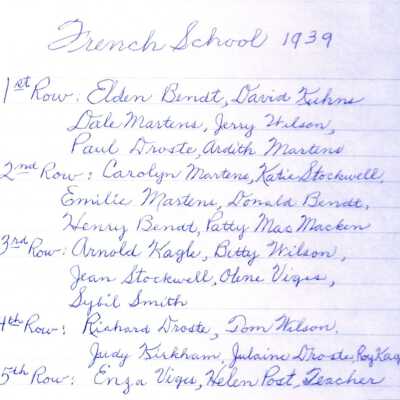 French School 1939
1st Row: Elden Bendt, David Kuhns
Dale Martens, Jerry Wilson,
Paul Droste, Ardith Martens
2nd Row: Carolyn Martens, Katie Stockwell,
Emilie Martens, Donald Bendt,
Henry Bendt, Patty Mac Macken
3rd Row: Arnold Kagle, Betty Wilson,
Jean Stockwell, Olene Viges,
Sybil Smith
4th Row: Richard Droste, Tom Wilson,
Judy Kirkham, Julaine Droste, Roy Kag
5th Row: Enza Viges, Helen Post, Teacher